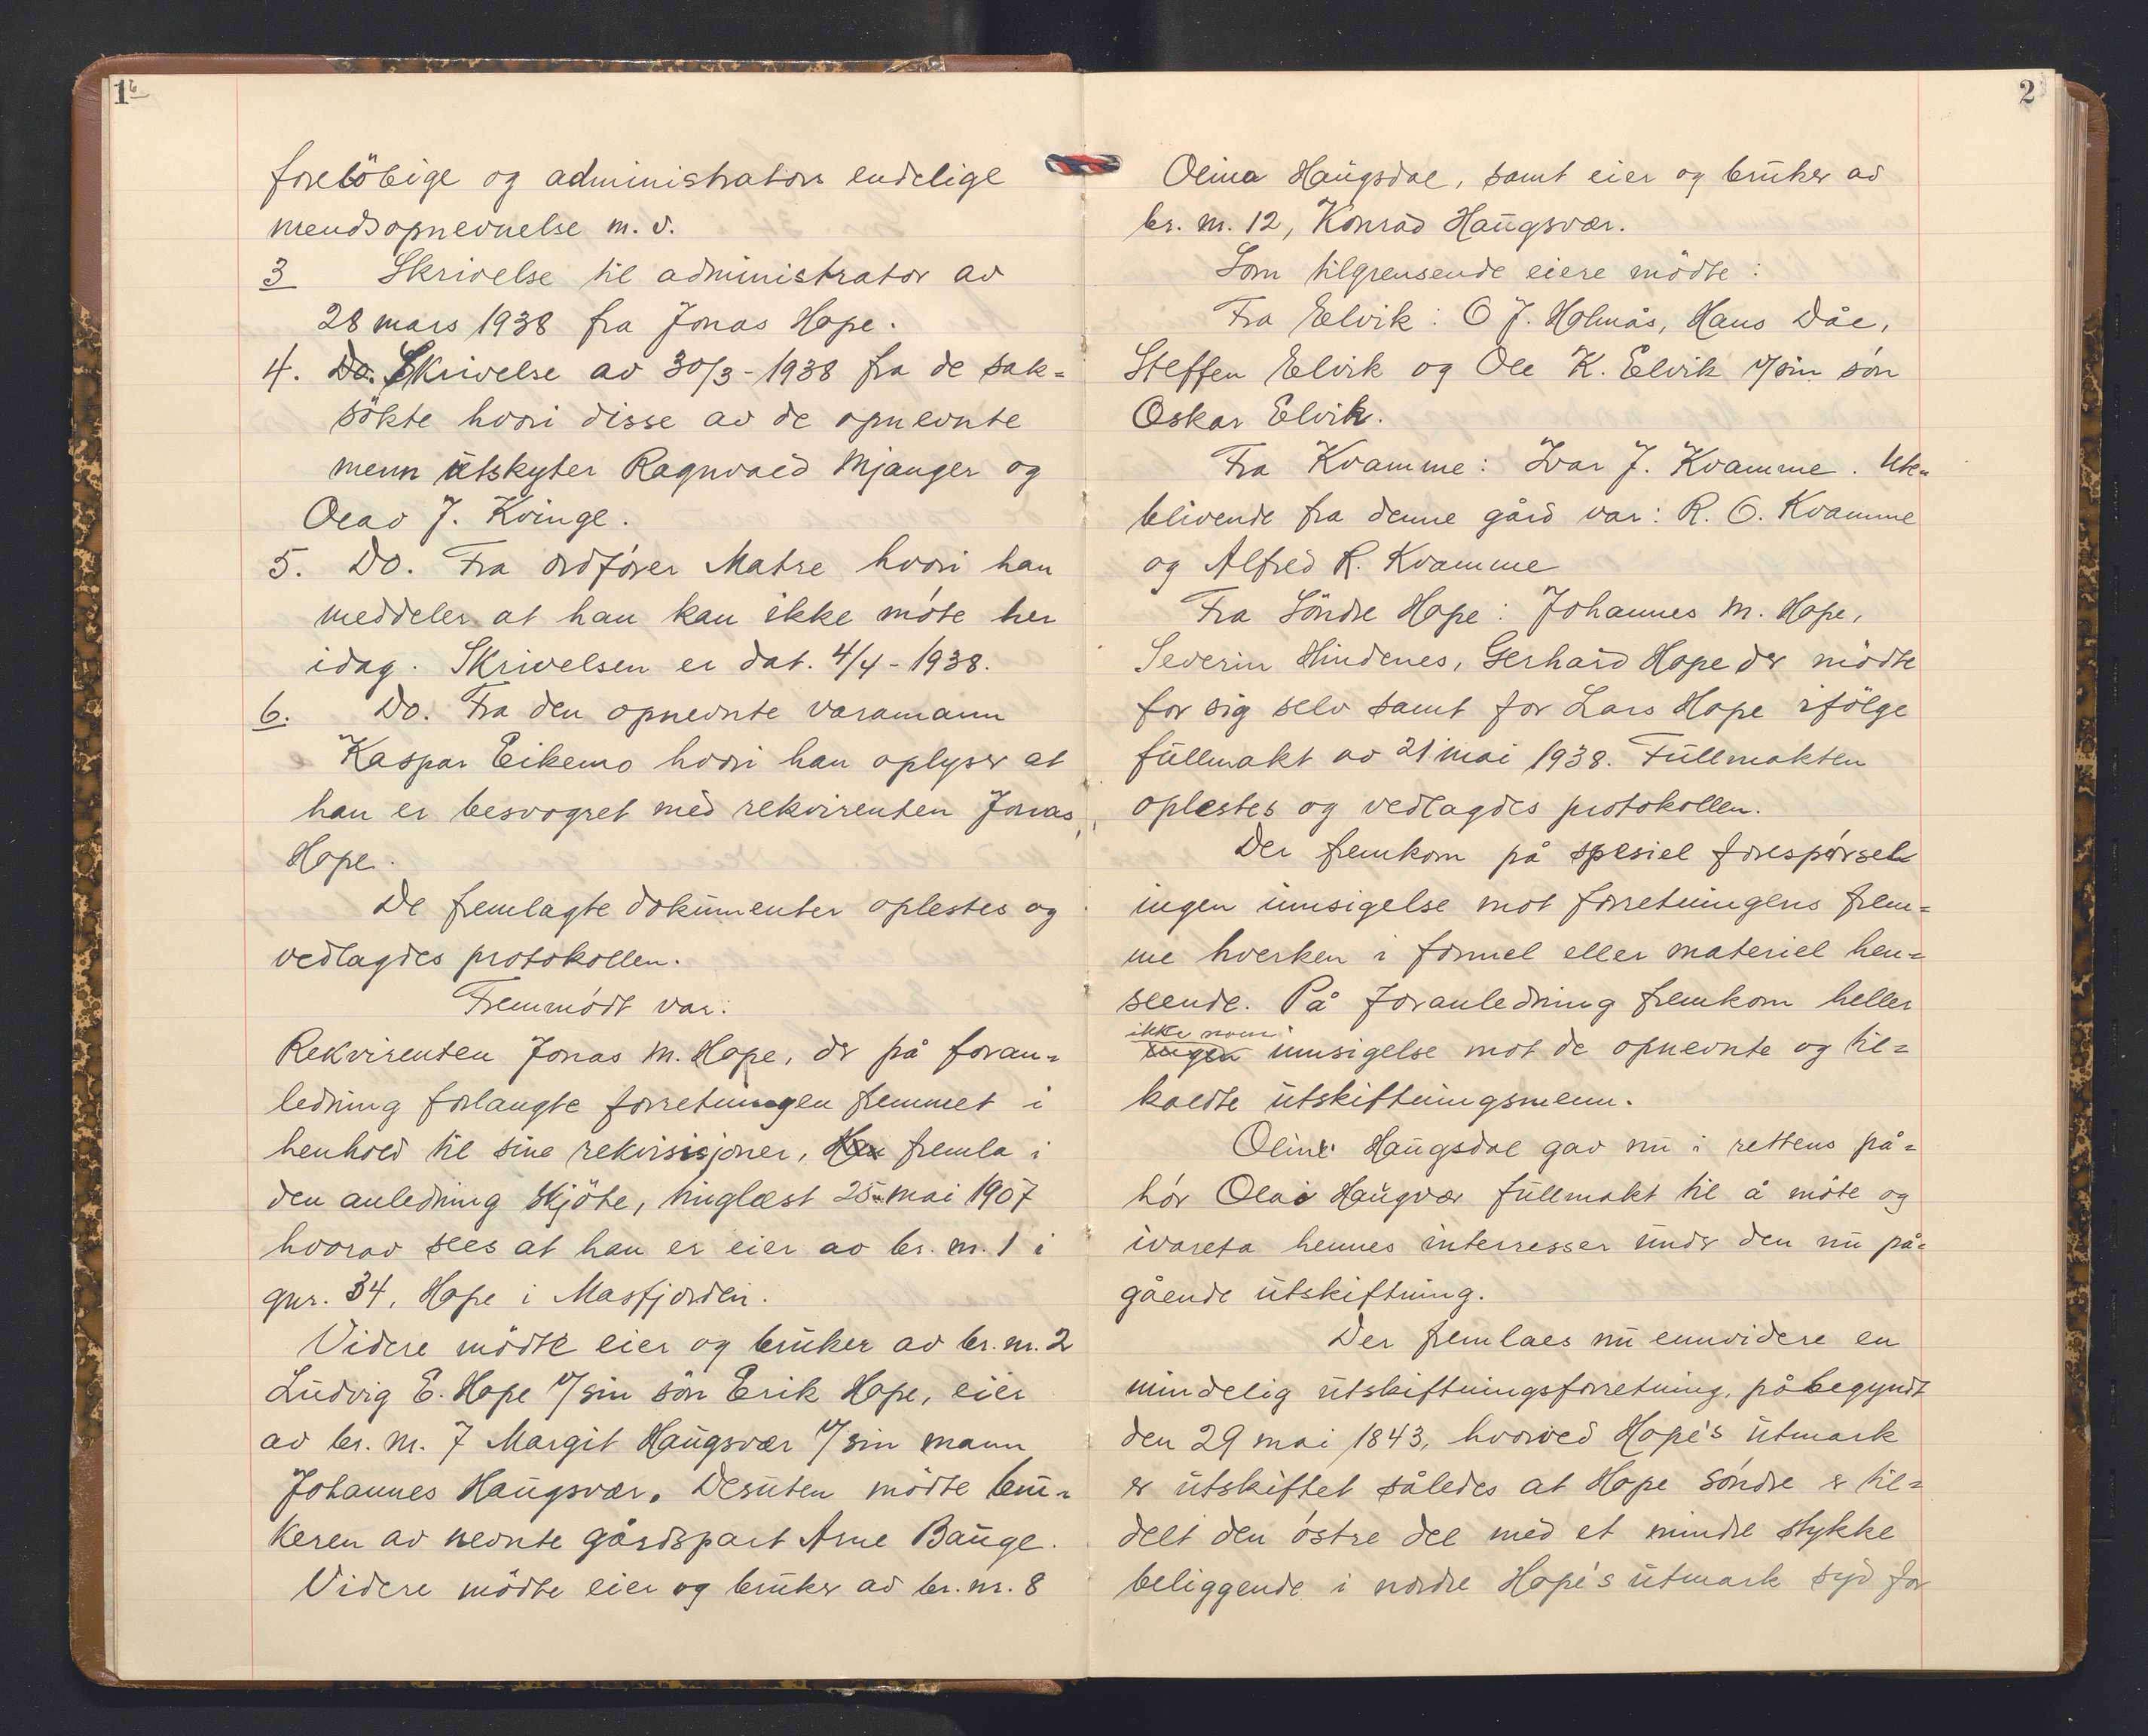 1b
foreløbige og administrators endelige
mendsopnevnelse m.v.
3 Skrivelse til administrator av
28 mars 1938 fra Jonas Hope.
4. Do. Skrivelse av 30/3-1938 fra de sak=
søkte hvori disse av de opnevnte
menn utskyter Ragnvald Mjanger og
Olav J. Kvinge.
5. Do. Fra ordfører Matre hvori han
meddeler at han kan ikke møte her
idag. Skrivelsen er dat. 4/4-1938.
6. Do. Fra den opnevnte varamann
Kaspar Eikemo hvori han oplyser at
han er besvogret med rekvirenten Jonas
Hope.
De fremlagte dokumenter oplestes og
vedlagdes protokollen.
Fremmødt var:
Rekvirenten Jonas M. Hope, der på foran=
ledning forlangte forretningen fremmet i
henhold til sine rekvisisjoner, Han fremla i
den anledning skjøte, tinglæst 25 mai 1907
hvorav sees at han er eier av br. nr. 1 i
gnr. 34, Hope i Masfjorden.
Videre mødte eier og bruker av br. nr. 2
Ludvig E. Hope v/sin søn Erik Hope, eier
av br. nr. 7 Margit Haugsvær v/sin mann
Johannes Haugsvær. Desuten mødte bru=
keren av nevnte gårdspart Arne Bauge.
Videre mødte eier og bruker av br. nr. 8
2
Olina Haugsdal, samt eier og bruker av
br. nr. 12, Konrad Haugsvær.
Som tilgrensende eiere mødte:
Fra Elvik: O J. Holmås, Hans Dåe,
Steffen Elvik og Ole K. Elvik v/sin søn
Oskar Elvik.
Fra Kvamme: Ivar J. Kvamme. Ute=
blivende fra denne gård var: R. O. Kvamme
og Alfred R. Kvamme
Fra Søndre Hope: Johannes M. Hope,
Severin Hindenes, Gerhard Hope der mødte
for sig selv samt for Lars Hope ifølge
fullmakt av 21 mai 1938. Fullmakten
oplestes og vedlagdes protokollen.
Der fremkom på spesiel forespørsel
ingen innsigelse mot forretningens frem=
me hverken i formel eller materiel hen=
seende. På foranledning fremkom heller
ikke noen
ingen innsigelse mot de opnevnte og til=
kaldte utskiftningsmenn.
Oline Haugsdal gav nu i rettens på=
hør Olai Haugvær fullmakt til å møte og
ivareta hennes interresser under den nu på=
gående utskiftning.
Der fremlaes nu ennvidere en
mindelig utskiftningsforretning, påbegyndt
den 29 mai 1843, hvorved Hope's utmark
er utskiftet således at Hope søndre er til=
delt den østre del med et mindre stykke
beliggende i nordre Hope's utmark syd for